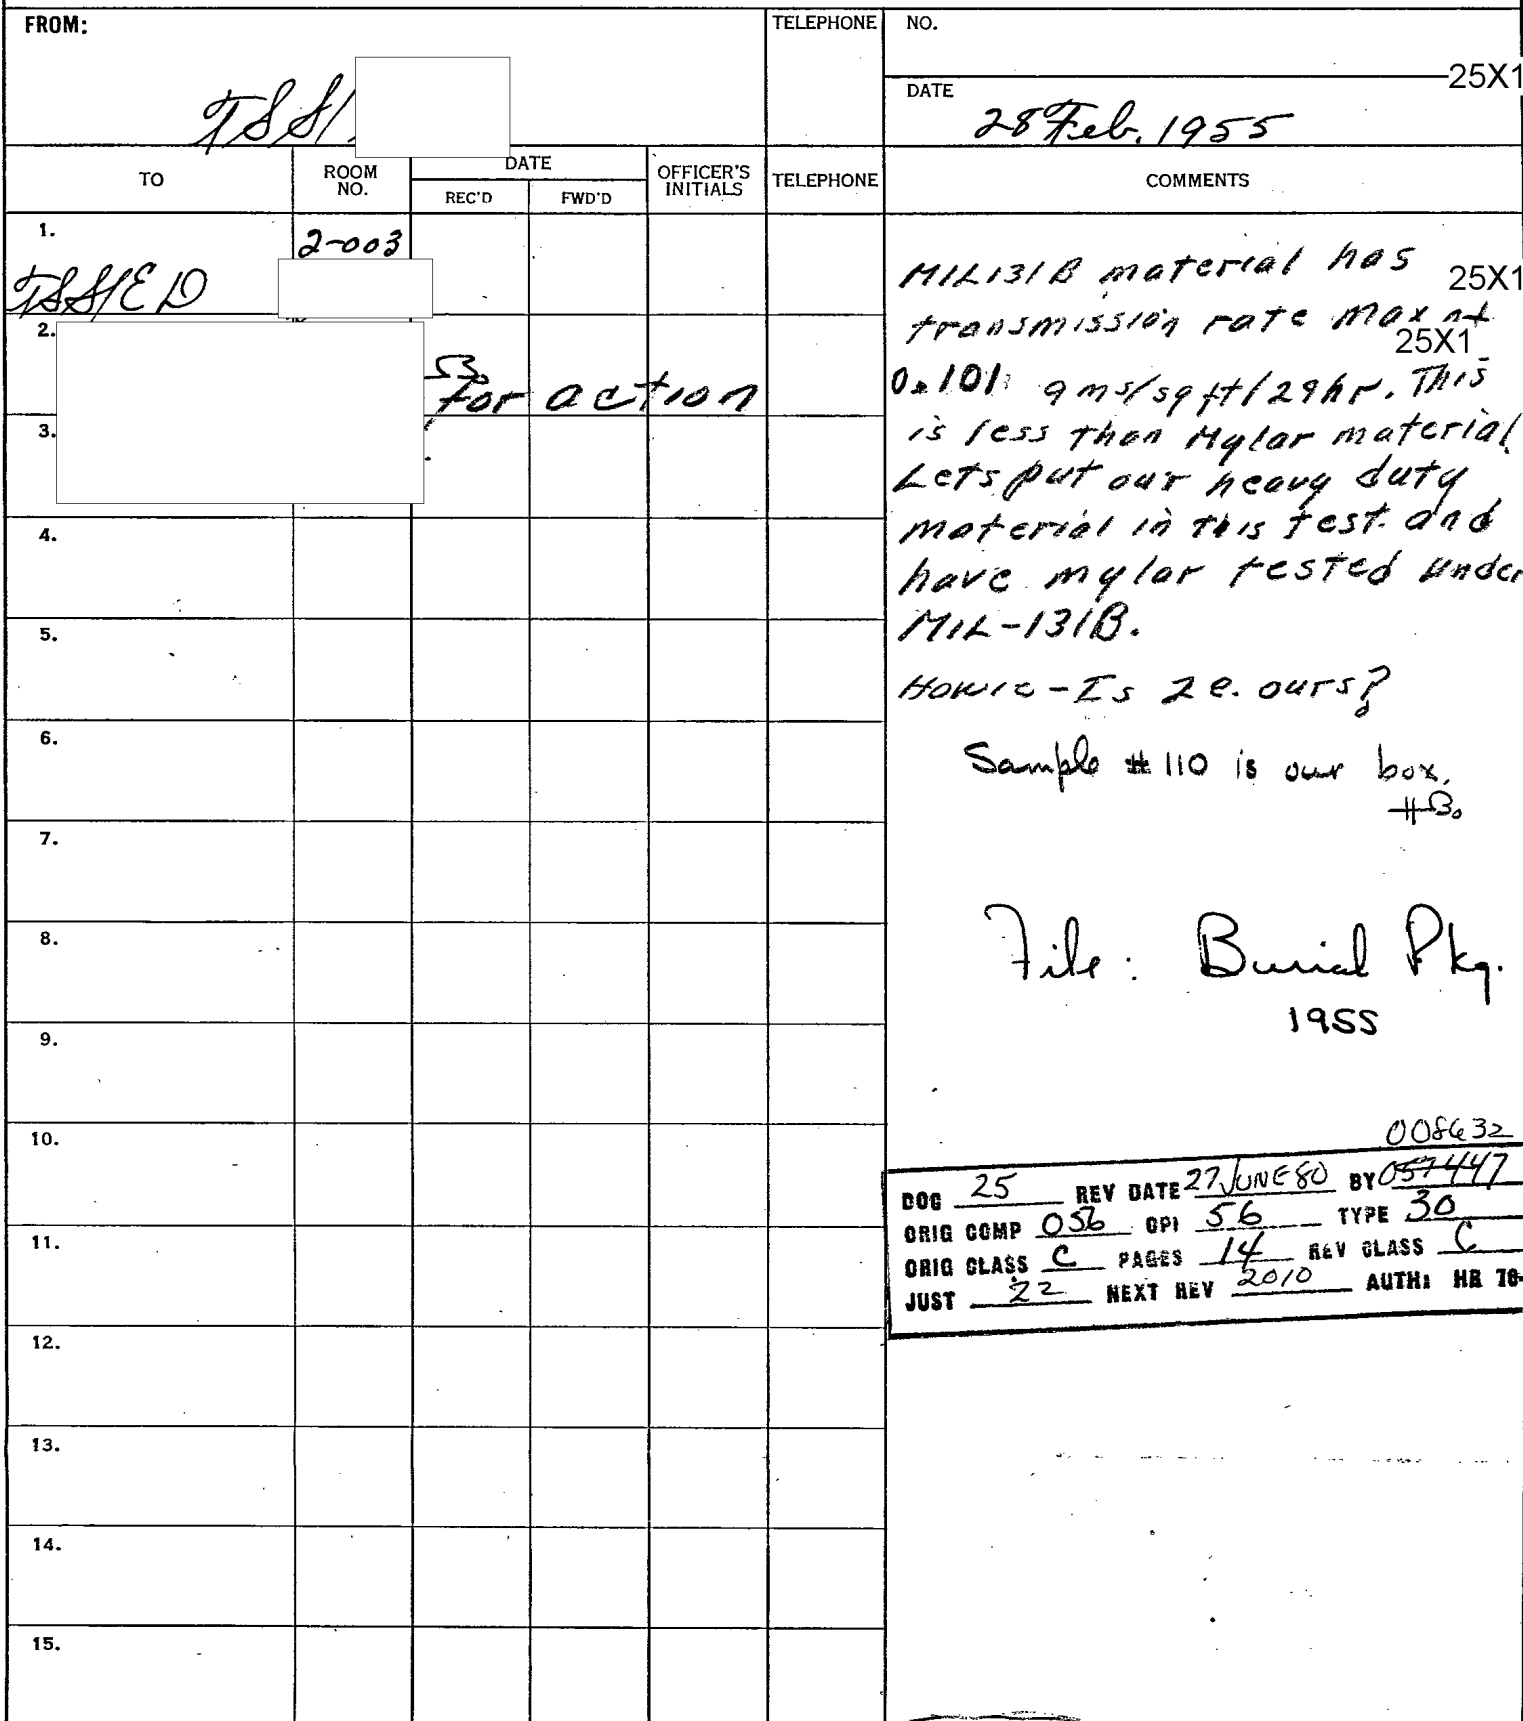 FROM:
TELEPHONE
NO.
25X1
DATE
TSS/
28 Feb. 1955
TO
ROOM NO.
DATE
REC'D
FWD'D
OFFICER'S INITIALS
TELEPHONE
COMMENTS
1.
2-003
TSS/ED
2.
for action
3.
4.
5.
6.
7.
8.
9.
10.
11.
12.
13.
14.
15.
MIL131B material has
25X1
transmission rate max
25X1
0.101 gms/sq ft/24hr. This
is less than Mylar material.
Lets put our heavy duty
material in this test and
have mylar tested under
MIL-131B.
Howie - Is 2 e. ours?
Sample # 110 is our box.
HB.
File: Burial Pkg.
1955
008632
DOC 25 REV DATE 27 JUNE 80 BY 057447
ORIG COMP 056 OPI 56 TYPE 30
ORIG CLASS C PAGES 14 REV CLASS C
JUST 22 NEXT REV 2010 AUTH: HR 70-